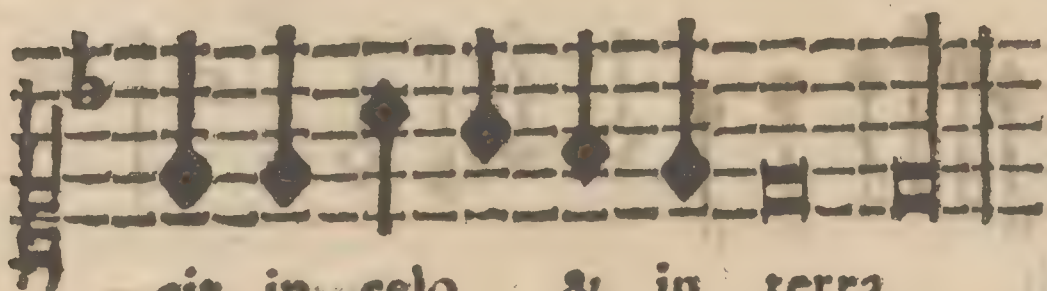 sit in celo & in terra